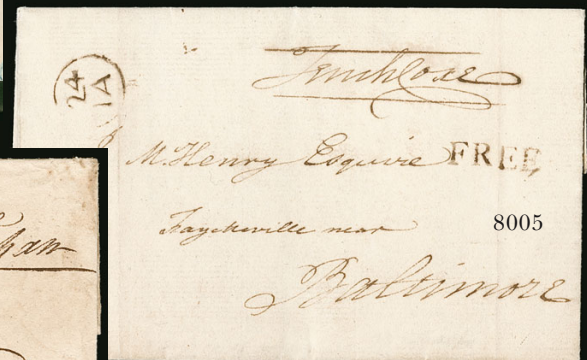 24
IA
Tench Coxe
McHenry Esquire FREE
Fayetteville near
8005
Baltimore